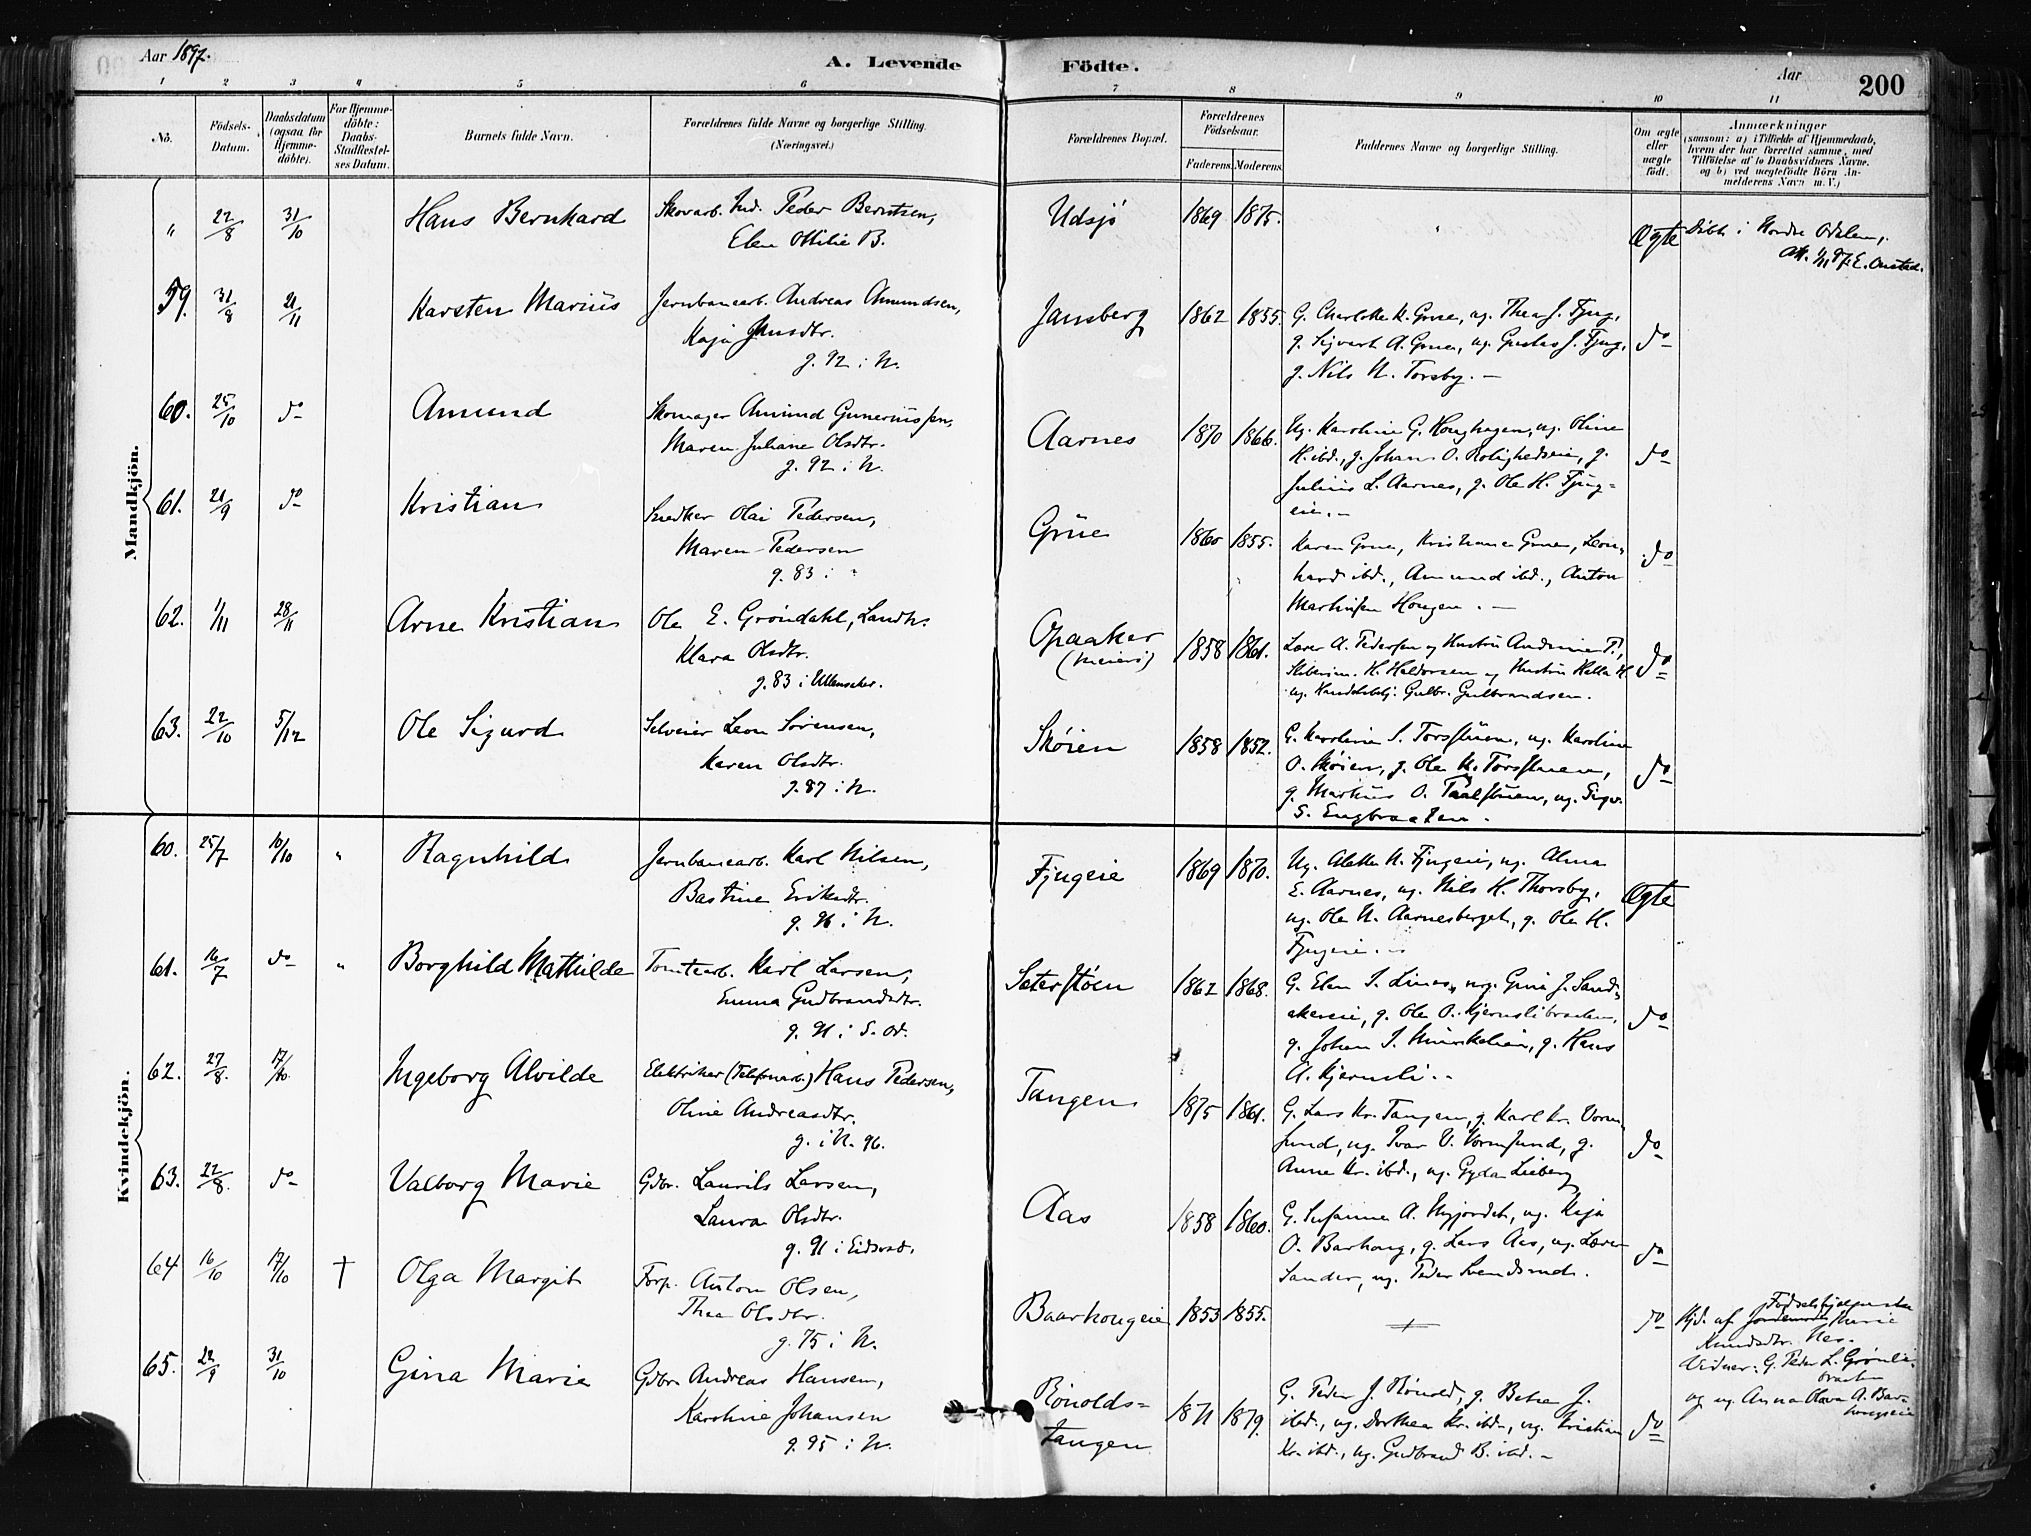 Aar 1897.
A. Levende Födte.
Aar
200
1 2 3 4 5 6 7 8 9 10 11
No.
Födsels-Datum.
Daabsdatum (ogsaa for Hjemme-döbte).
For Hjemme-döbte: Daabs-Stadfæstel-ses Datum.
Barnets fulde Navn.
Forældrenes fulde Navne og borgerlige Stilling. (Næringsvei.)
Forældrenes Bopæl.
Forældrenes Födselsaar.
Faderens. Moderens.
Faddernes Navne og borgerlige Stilling.
Om ægte eller uægte födt.
Anmærkninger
(saasom: a) i Tilfælde af Hjemmedaab, hvem der har forrettet samme, med Tilföielse af to Daabsvidners Navne. og b) ved uægtefödte Börn An-melderens Navn m. V.)
Mandkjön.
" 22/8 31/10 Hans Bernhard
Skovarb. Ind. Peder Berntsen,
Elen Ottilie B.
Udsjö 1869 1875. " Ægte
Döbt i Nordre Odalen,
Att. 1/11 97. E. Onstad.
59. 31/8 21/11 Karsten Marius
Jernbanearb. Andreas Amundsen,
Kaja Jensdtr.
g. 92 i N.
Jansberg 1862 1855.
G. Charlotte K. Grue, ug. Thea J. Fjug,
g. Sigvart A. Grue, ug. Gustav J. Fjug,
g. Nils N. Torsby. —
do
60. 25/10 do Amund
Skomager Amund Gunerius sen,
Maren Juliane Olsdtr.
g. 92 i N.
Aarnes 1870 1866.
Ug. Karoline G. Honghagen, ug. Oline
H. ibd., g. Johan O. Rolighedseie, g.
Julius L. Aarnes, g. Ole H. Fjug-
eie. —
do
61. 21/9 do Kristian
Snedker Olai Pedersen,
Maren Pedersen
g. 83 i "
Grue 1860 1855.
Karen Grue, Kristiane Grue, Leon-
hard ibd., Amund ibd., Anton
Martinsen Hougen. —
do
62. 1/11 28/11 Arne Kristian
Ole E. Gröndahl, Landh.
Klara Olsdtr.
g. 83 i Ullensaker.
Opaaker
(Meieri) 1858 1861.
Lærer A. Pedersen og Hustru Andrine P.,
H. Haldorsen og Hustru Halla H.
ug. Handelsbetj. Gulbr. Gulbrandsen.
do
63. 22/10 5/12 Ole Sigurd
Selveier Leon Sörensen,
Karen Olsdtr.
g. 87 i N.
Sköien 1858 1852.
G. Karoline S. Torsstuen, ug. Karoline
O. Sköien, g. Ole N. Torsstuen,
g. Markus O. Paalstuen, ug. Sigv.
S. Engbraaten.
do
Kvindekjön.
60. 25/7 10/10 " Ragnhild
Jernbanearb. Karl Nilsen,
Bastine Eriksdtr.
g. 96 i N.
Fjugeie 1869 1870.
Ug. Alette N. Fjugeie, ug. Alma
E. Aarnes, ug. Nils H. Thorsby,
ug. Ole N. Aarnesberget, g. Ole H.
Fjugeie. —
Ægte
61. 16/7 do " Borghild Mathilde
Tomtearb. Karl Larsen,
Emma Gudbrandsdtr.
g. 91 i S. Od.
Sæterstöen 1862 1868.
G. Elen S. Lines, ug. Gina J. Sand-
akereie, g. Ole O. Kjernslibraaten,
g. Johan S. , g. Hans
A. Kjernsli. —
do
62. 27/8. 17/10. Ingeborg Alvilde
Elektriker (Telefonarb.) Hans Pedersen,
Oline Andreasdtr.
g. i N. 96.
Tangen 1875 1861.
G. Lars Kr. Tangen, g. Karl Kr. Vorm-
sund, ug. Ivar V. Vormsund, g.
Anne Kr. ibd., ug. Gyda Lieberg
do
63. 22/8. do Valborg Marie
Gdbr. Laurits Larsen,
Laura Olsdtr.
g. 91 i Eidsvold.
Aas 1858 1860.
G. Susanne A. Nyjordet, ug. Kaja
O. Barhoug, g. Lars Aas, ug. Lærer
Sander, ug. Peder Svendsrud.
do
64 16/10 17/10 † Olga Margit
Forp. Anton Olsen,
Thea Olsdtr.
g. 75 i N.
Baarhougeie 1853 1855. do
Hjd. af Jordemoder Födselshjelperske Marie
Knudsdtr. Nes.
Vidner: G. Peder L. Grönli-
braaten
og ug. Anna Olava A. Bar-
hougeie
65. 22/9 31/10 Gina Marie
Gdbr. Andreas Hansen,
Karoline Johansen
g. 95 i N.
Rönolds-
tangen 1871 1879.
G. Peder J. Rönold, g. Betea J.
ibd., ug. Dorthea Kr. ibd., ug. Kristian
Kr. ibd., ug. Gudbrand B. ibd. —
do